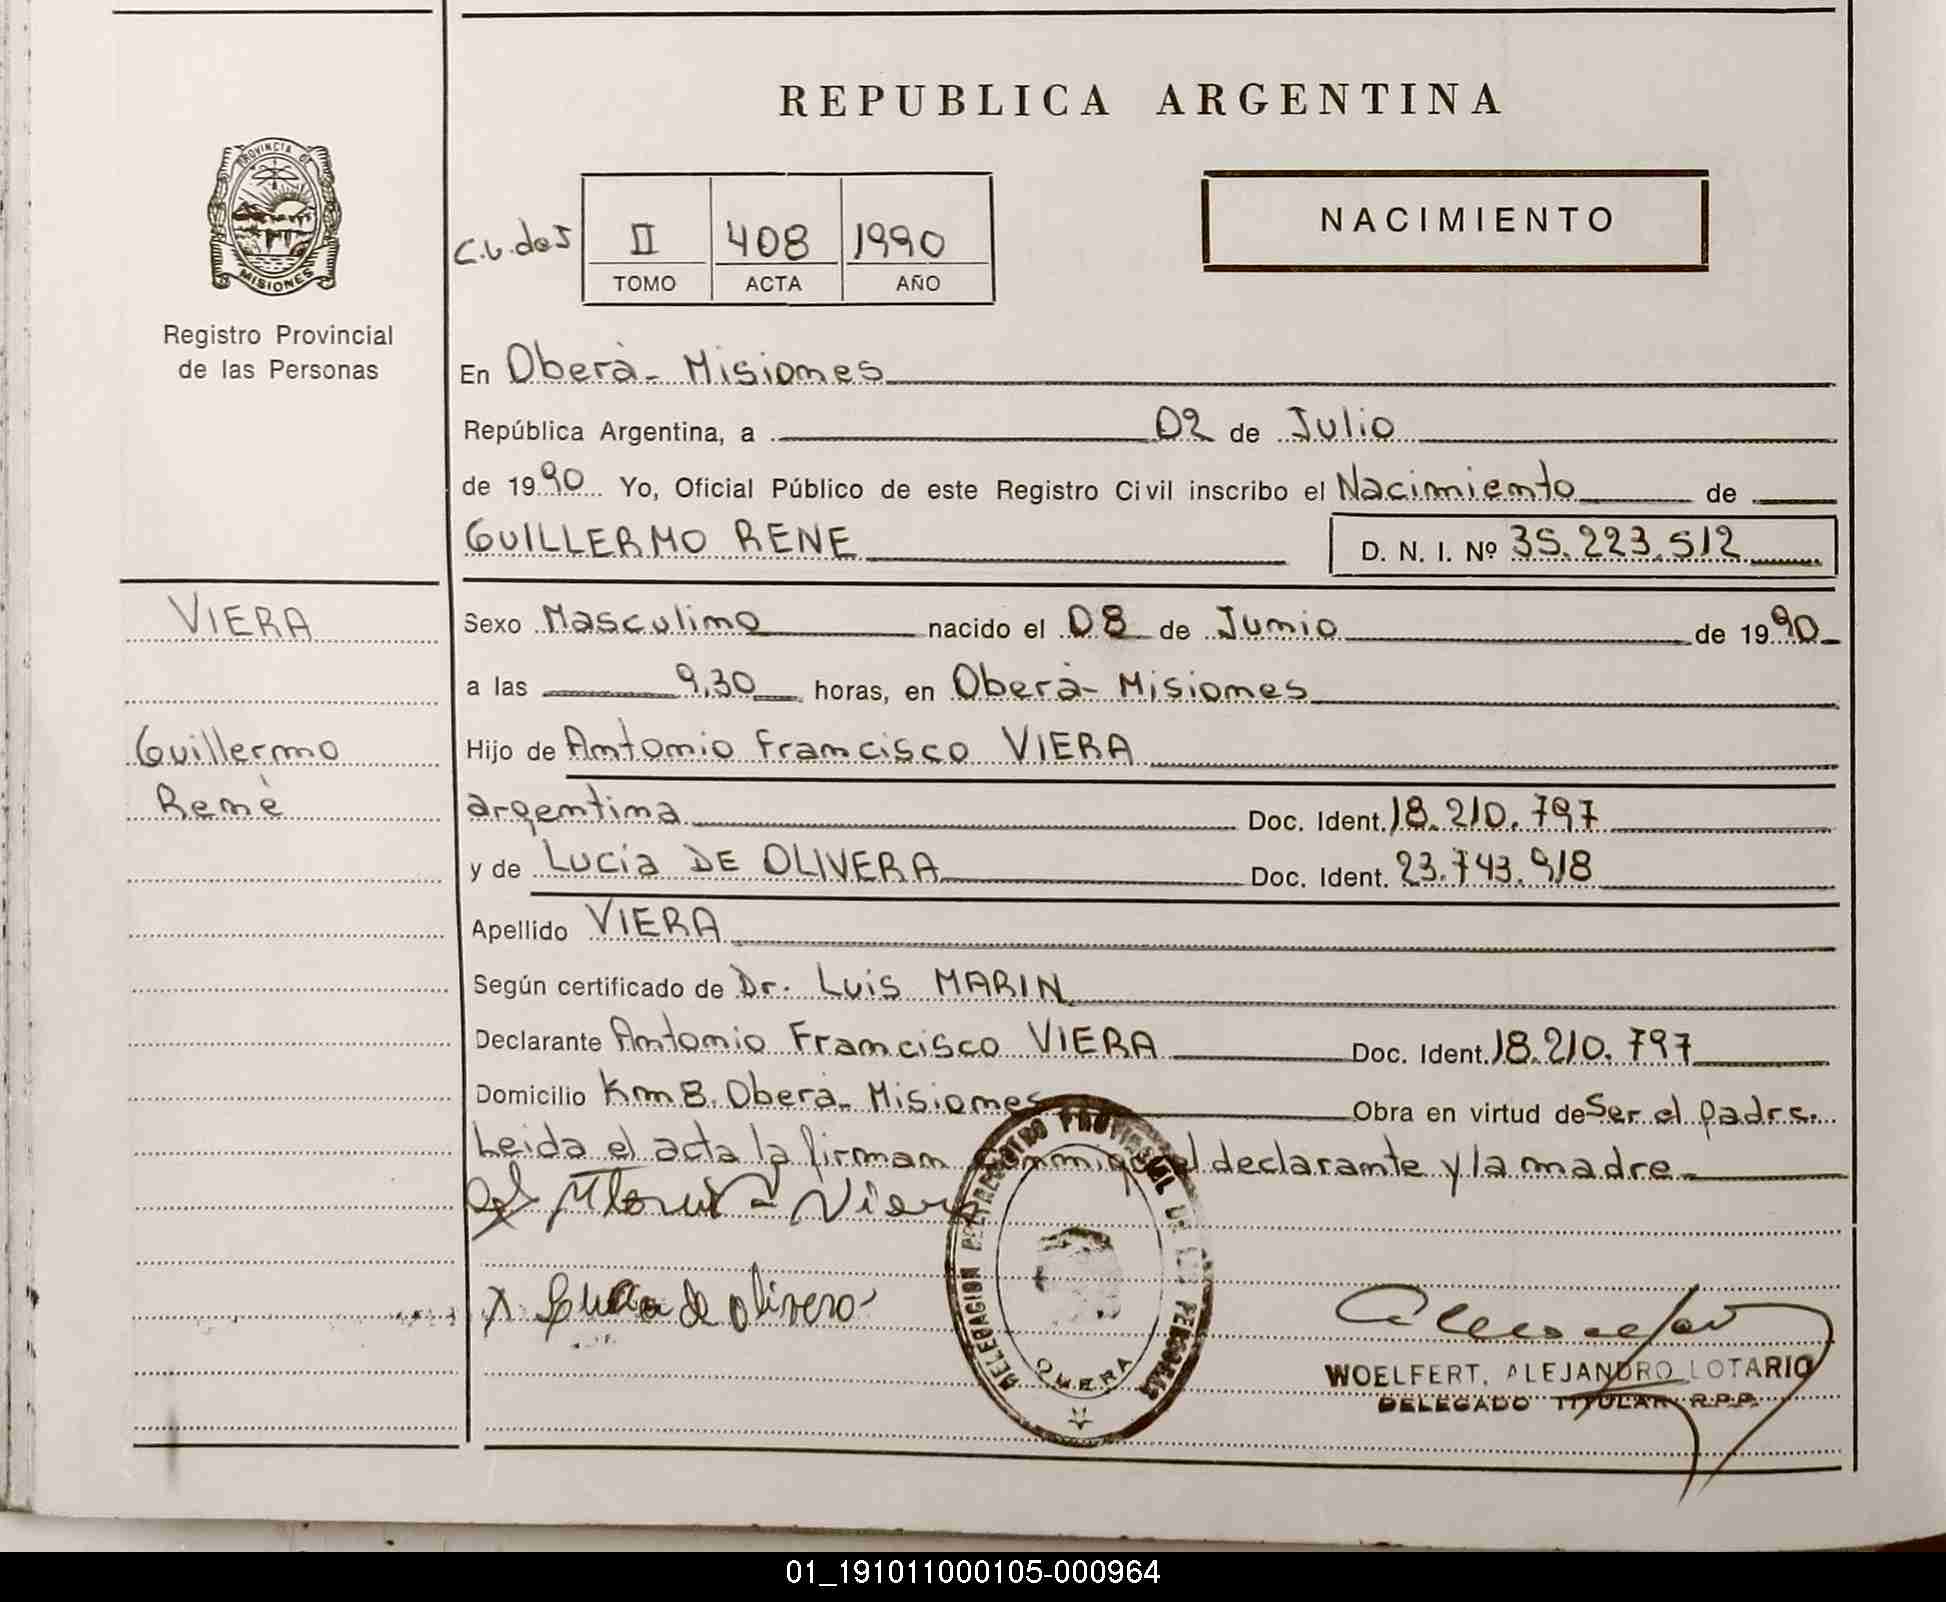 REPUBLICA ARGENTINA
PROVINCIA DE
MISIONES
Registro Provincial
de las Personas
NACIMIENTO
II 408 1990
TOMO ACTA AÑO
En Oberà - Misiones
República Argentina, a 02 de Julio
de 1990 Yo, Oficial Público de este Registro Civil inscribo el Nacimiento de
GUILLERMO RENE D. N. I. Nº 35.223.512
VIERA
Guillermo
Renè
Sexo Masculino nacido el 08 de Junio de 1990
a las 9,30 horas, en Oberà - Misiones
Hijo de Antonio Francisco VIERA
argentina Doc. Ident. 18.210.797
y de Lucia DE OLIVERA Doc. Ident. 23.743.918
Apellido VIERA
Según certificado de Dr. Luis MARIN
Declarante Antonio Francisco VIERA Doc. Ident. 18.210.797
Domicilio Km 8. Oberà - Misiones Obra en virtud de Ser el padre.
Leida el acta la firman conmigo el declarante y la madre
DELEGACION REGISTRO PROVINCIAL DE LAS PERSONAS
OBERA
de olivera
WOELFERT, ALEJANDRO LOTARIO
DELEGADO TITULAR R.P.P.
01_191011000105-000964